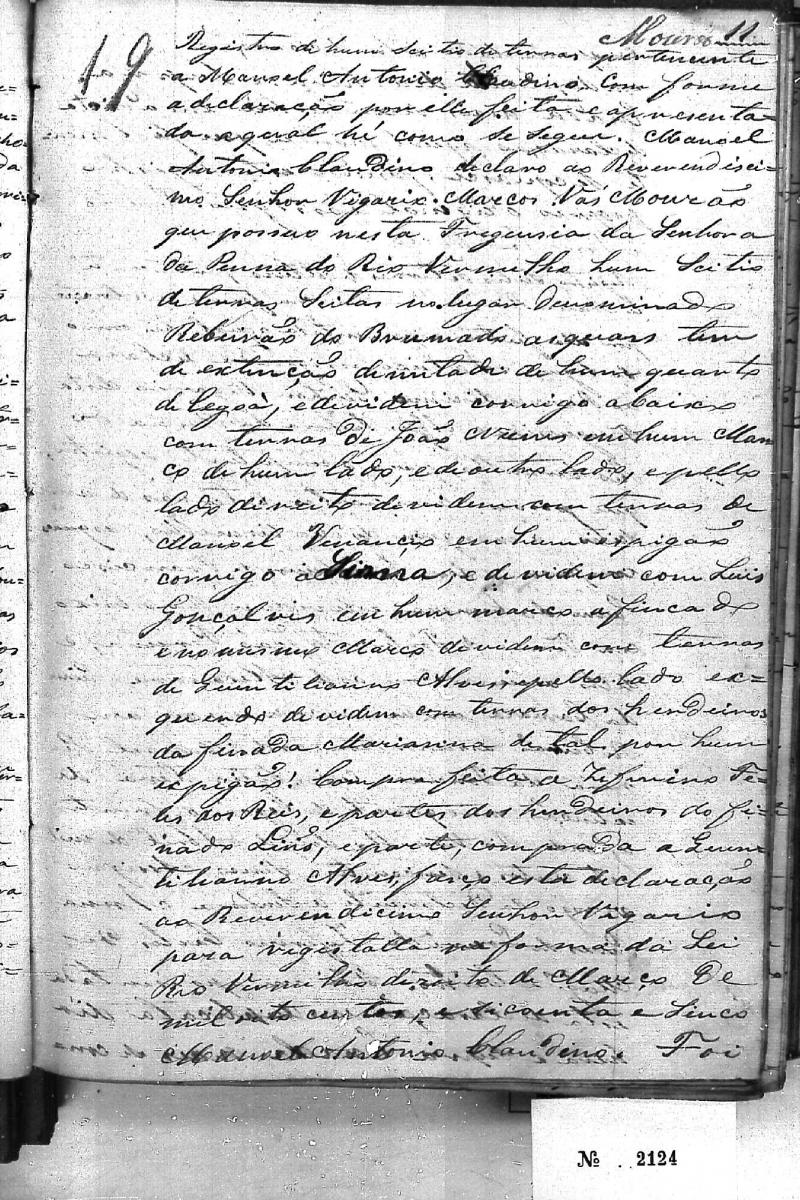 Mourão 11
19
Registro de hum Scitio de terras pertencente
a Manoel Antonio Claudino Com forme
a declaração por elle feita e apresenta-
da a qual hé como se segue. Manoel
Antonio Claudino declaro ao Reverendisci=
mo Senhor Vigario Marcos Vás Mourão
que possuo nesta Freguesia da Senhora
da Penna do Rio Vermelho hum Scitio
de terras Seitas no lugar denominado
Rebeirão do Brumado as quais tem
de extenção de mitade de hum quarto
de legoà, e devidem corrigo abaixo
com terras de João Nunes em hum Mar
co de hum lado, e de outro lado, e pello
lado direito devidem com terras de
Manoel Venancio em hum espigão
corrigo a Sima, e devidem com Luis
Gonçalvis em hum marco afincado
e no mesmo Marco devidem com terras
de Quintilianno Alves e pello lado ex=
querdo devidem com terras dos herdeiros
da finada Marianna de tal por hum
espigão! Compra feita a Zeferino Te-
les dos Reis, e partes dos herdeiros do fi-
nado Lino, e parte, comprada a Quin
tilianno Alves, faço esta declaração
ao Reverendicimo Senhor Vigario
para regestalla na forma da Lei
Rio Vermelho dizoito de Março De
mil oito centos, e sicoenta e Sinco
Manoel Antonio Claudino. Foi
№ 2124